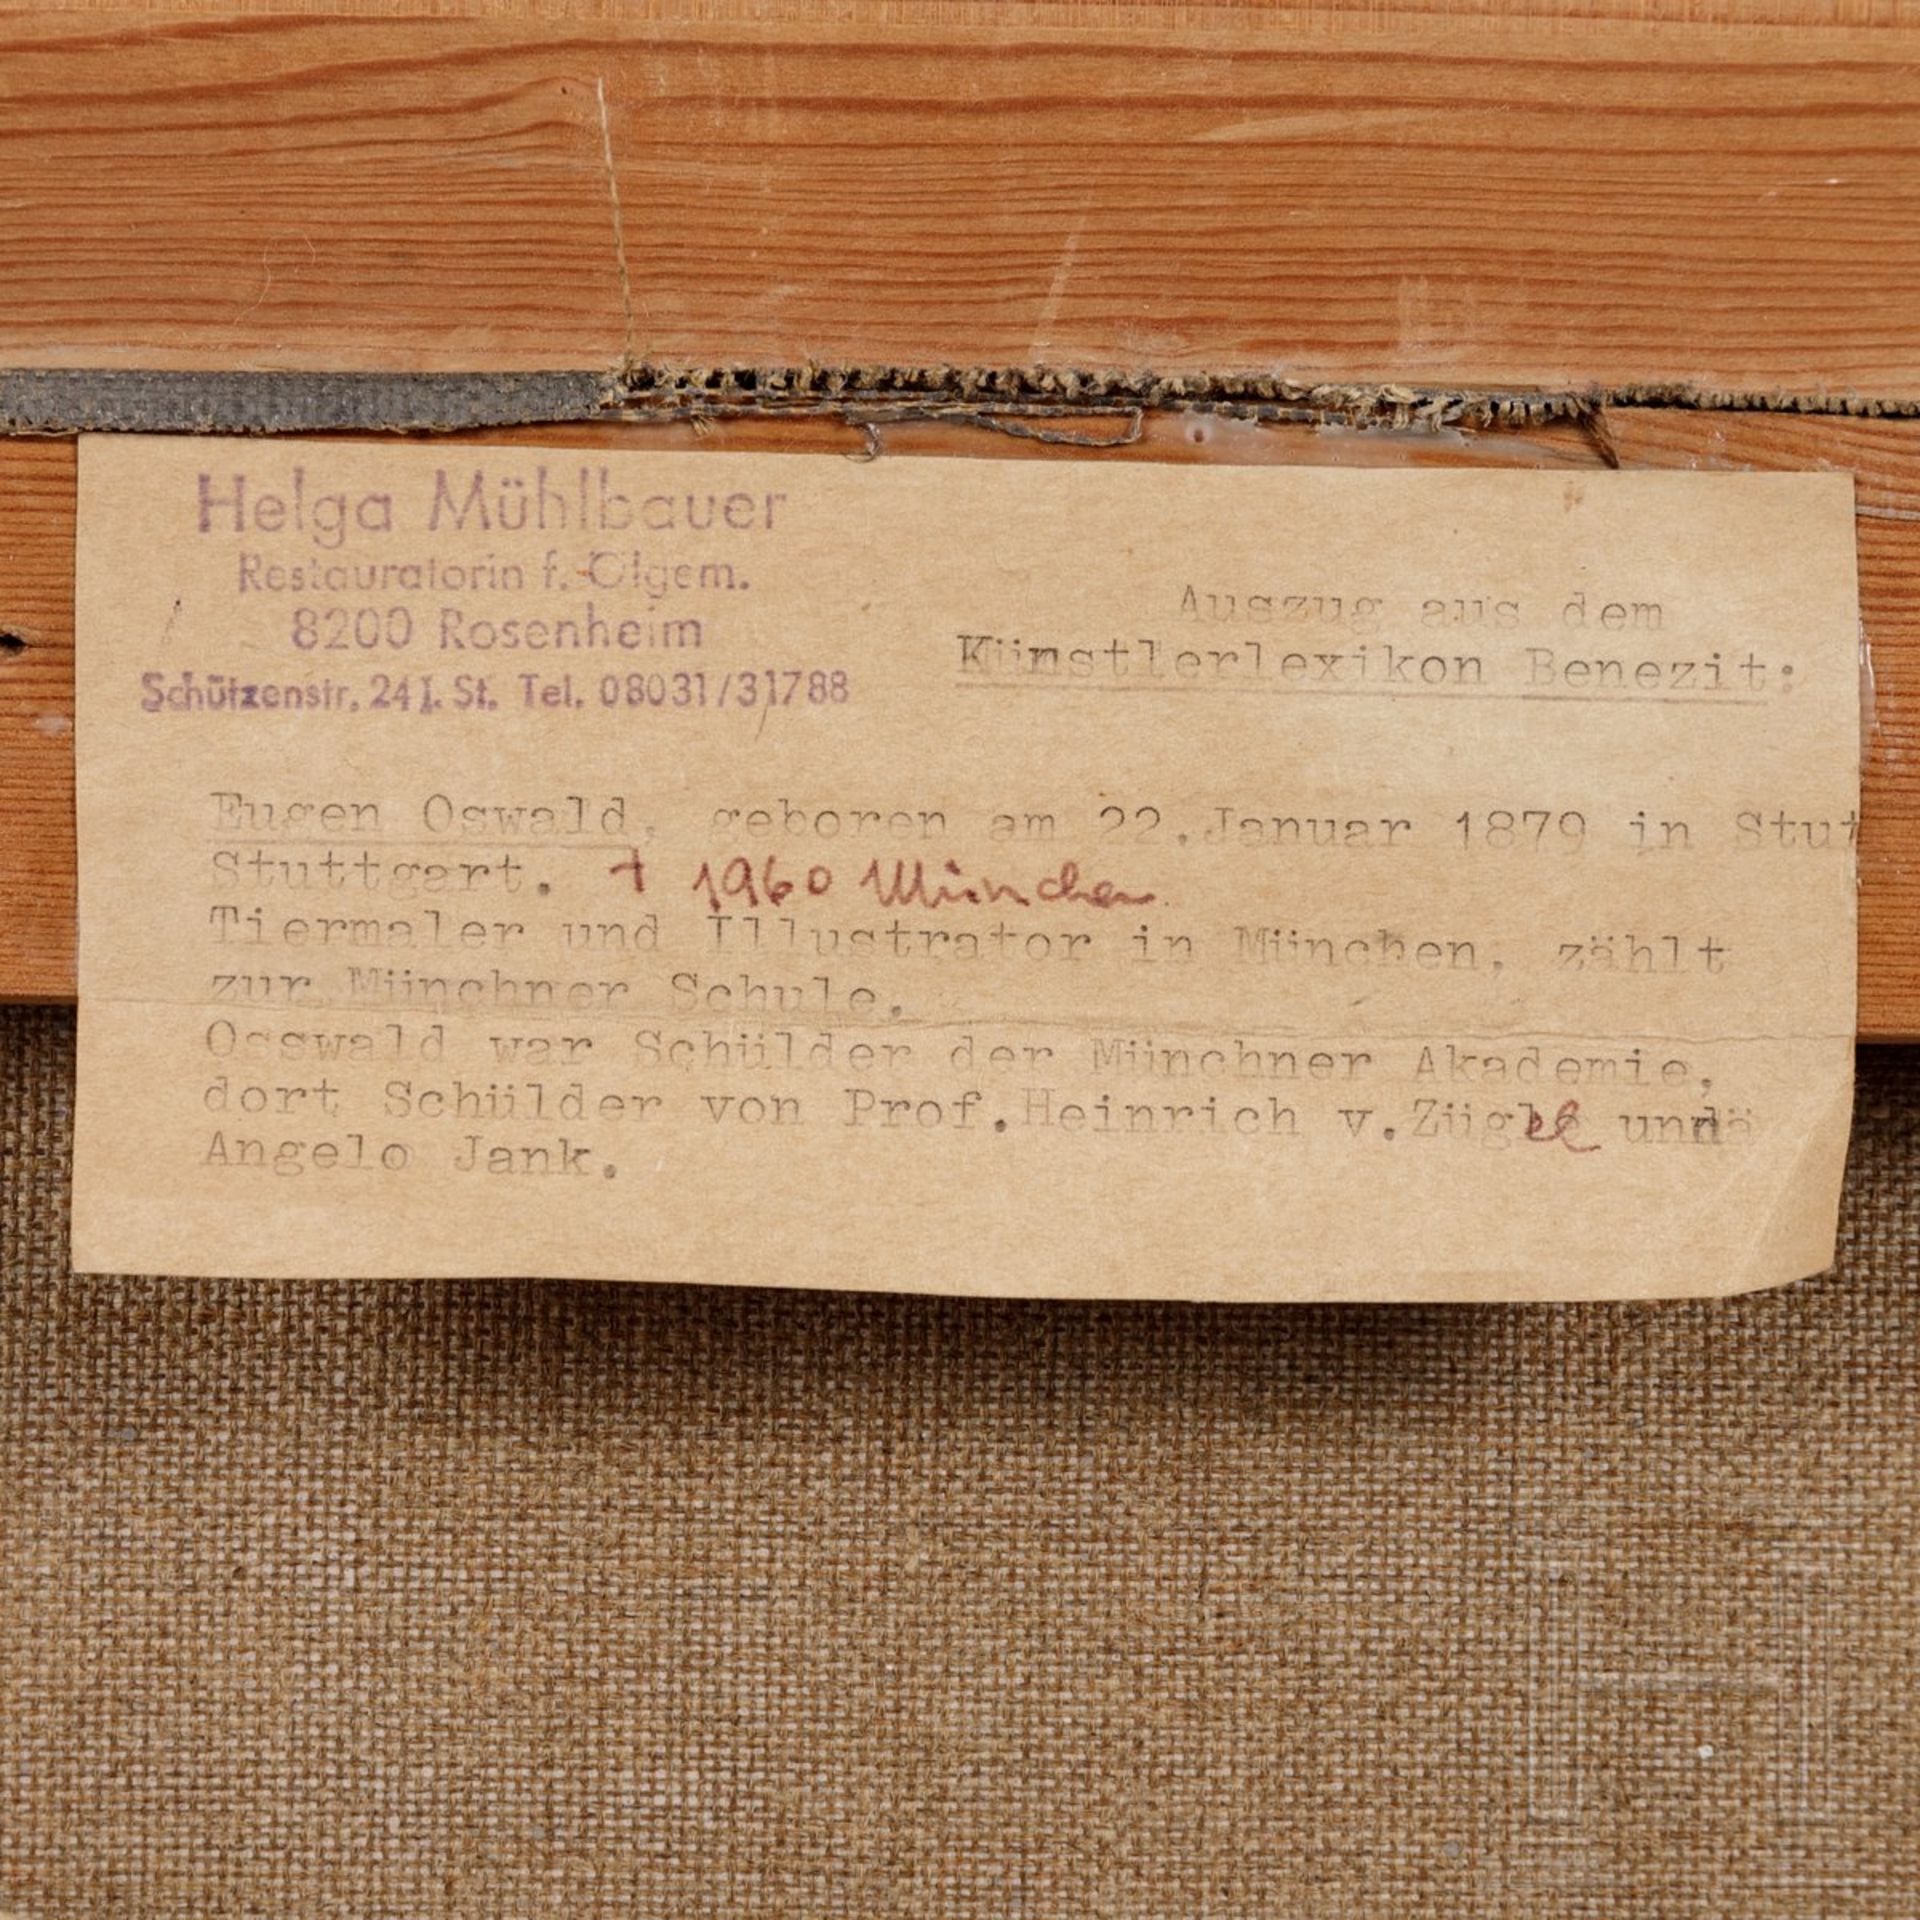 Helga Mühlbauer
Restauratorin f. Ölgem.
8200 Rosenheim
Schützenstr. 24 I. St. Tel. 08031/31788
Auszug aus dem
Künstlerlexikon Benezit:
Eugen Oswald, geboren am 22.Januar 1879 in Stut
Stuttgart. + 1960 München
Tiermaler und Illustrator in München, zählt
zur Münchner Schule.
Osswald war Schülder der Münchner Akademie,
dort Schülder von Prof.Heinrich v.Zügel und
Angelo Jank.